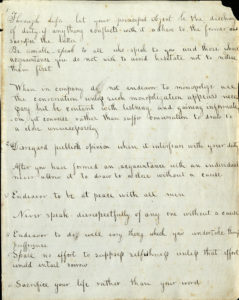 Through life let your principal object be the discharge
of duty if anything conflicts with it adhere to the former and
sacrifice the latter
Be sociable speak to all who speak to you and those whose
acquaintance you do not wish to avoid hesitate not to notice
them first
When in company do not endeavor to monopolize
the conversation unless such monopolization appears necessary
but be content with listening and gaining information
on yet converse rather than suffer conversation to draw to
a close unnecessarily
Disregard publick opinion when it interferes with your duty
After you have formed an acquaintance with an individual
never allow it to draw to a close without a cause
Endeavor to be at peace with all men
Never speak disrespectfully of any one without a cause
Endeavor to do well every thing which you undertake through
preference
Spare no effort to suppress selfishness unless that effort
would entail sorrow
Sacrifice your life rather than your word